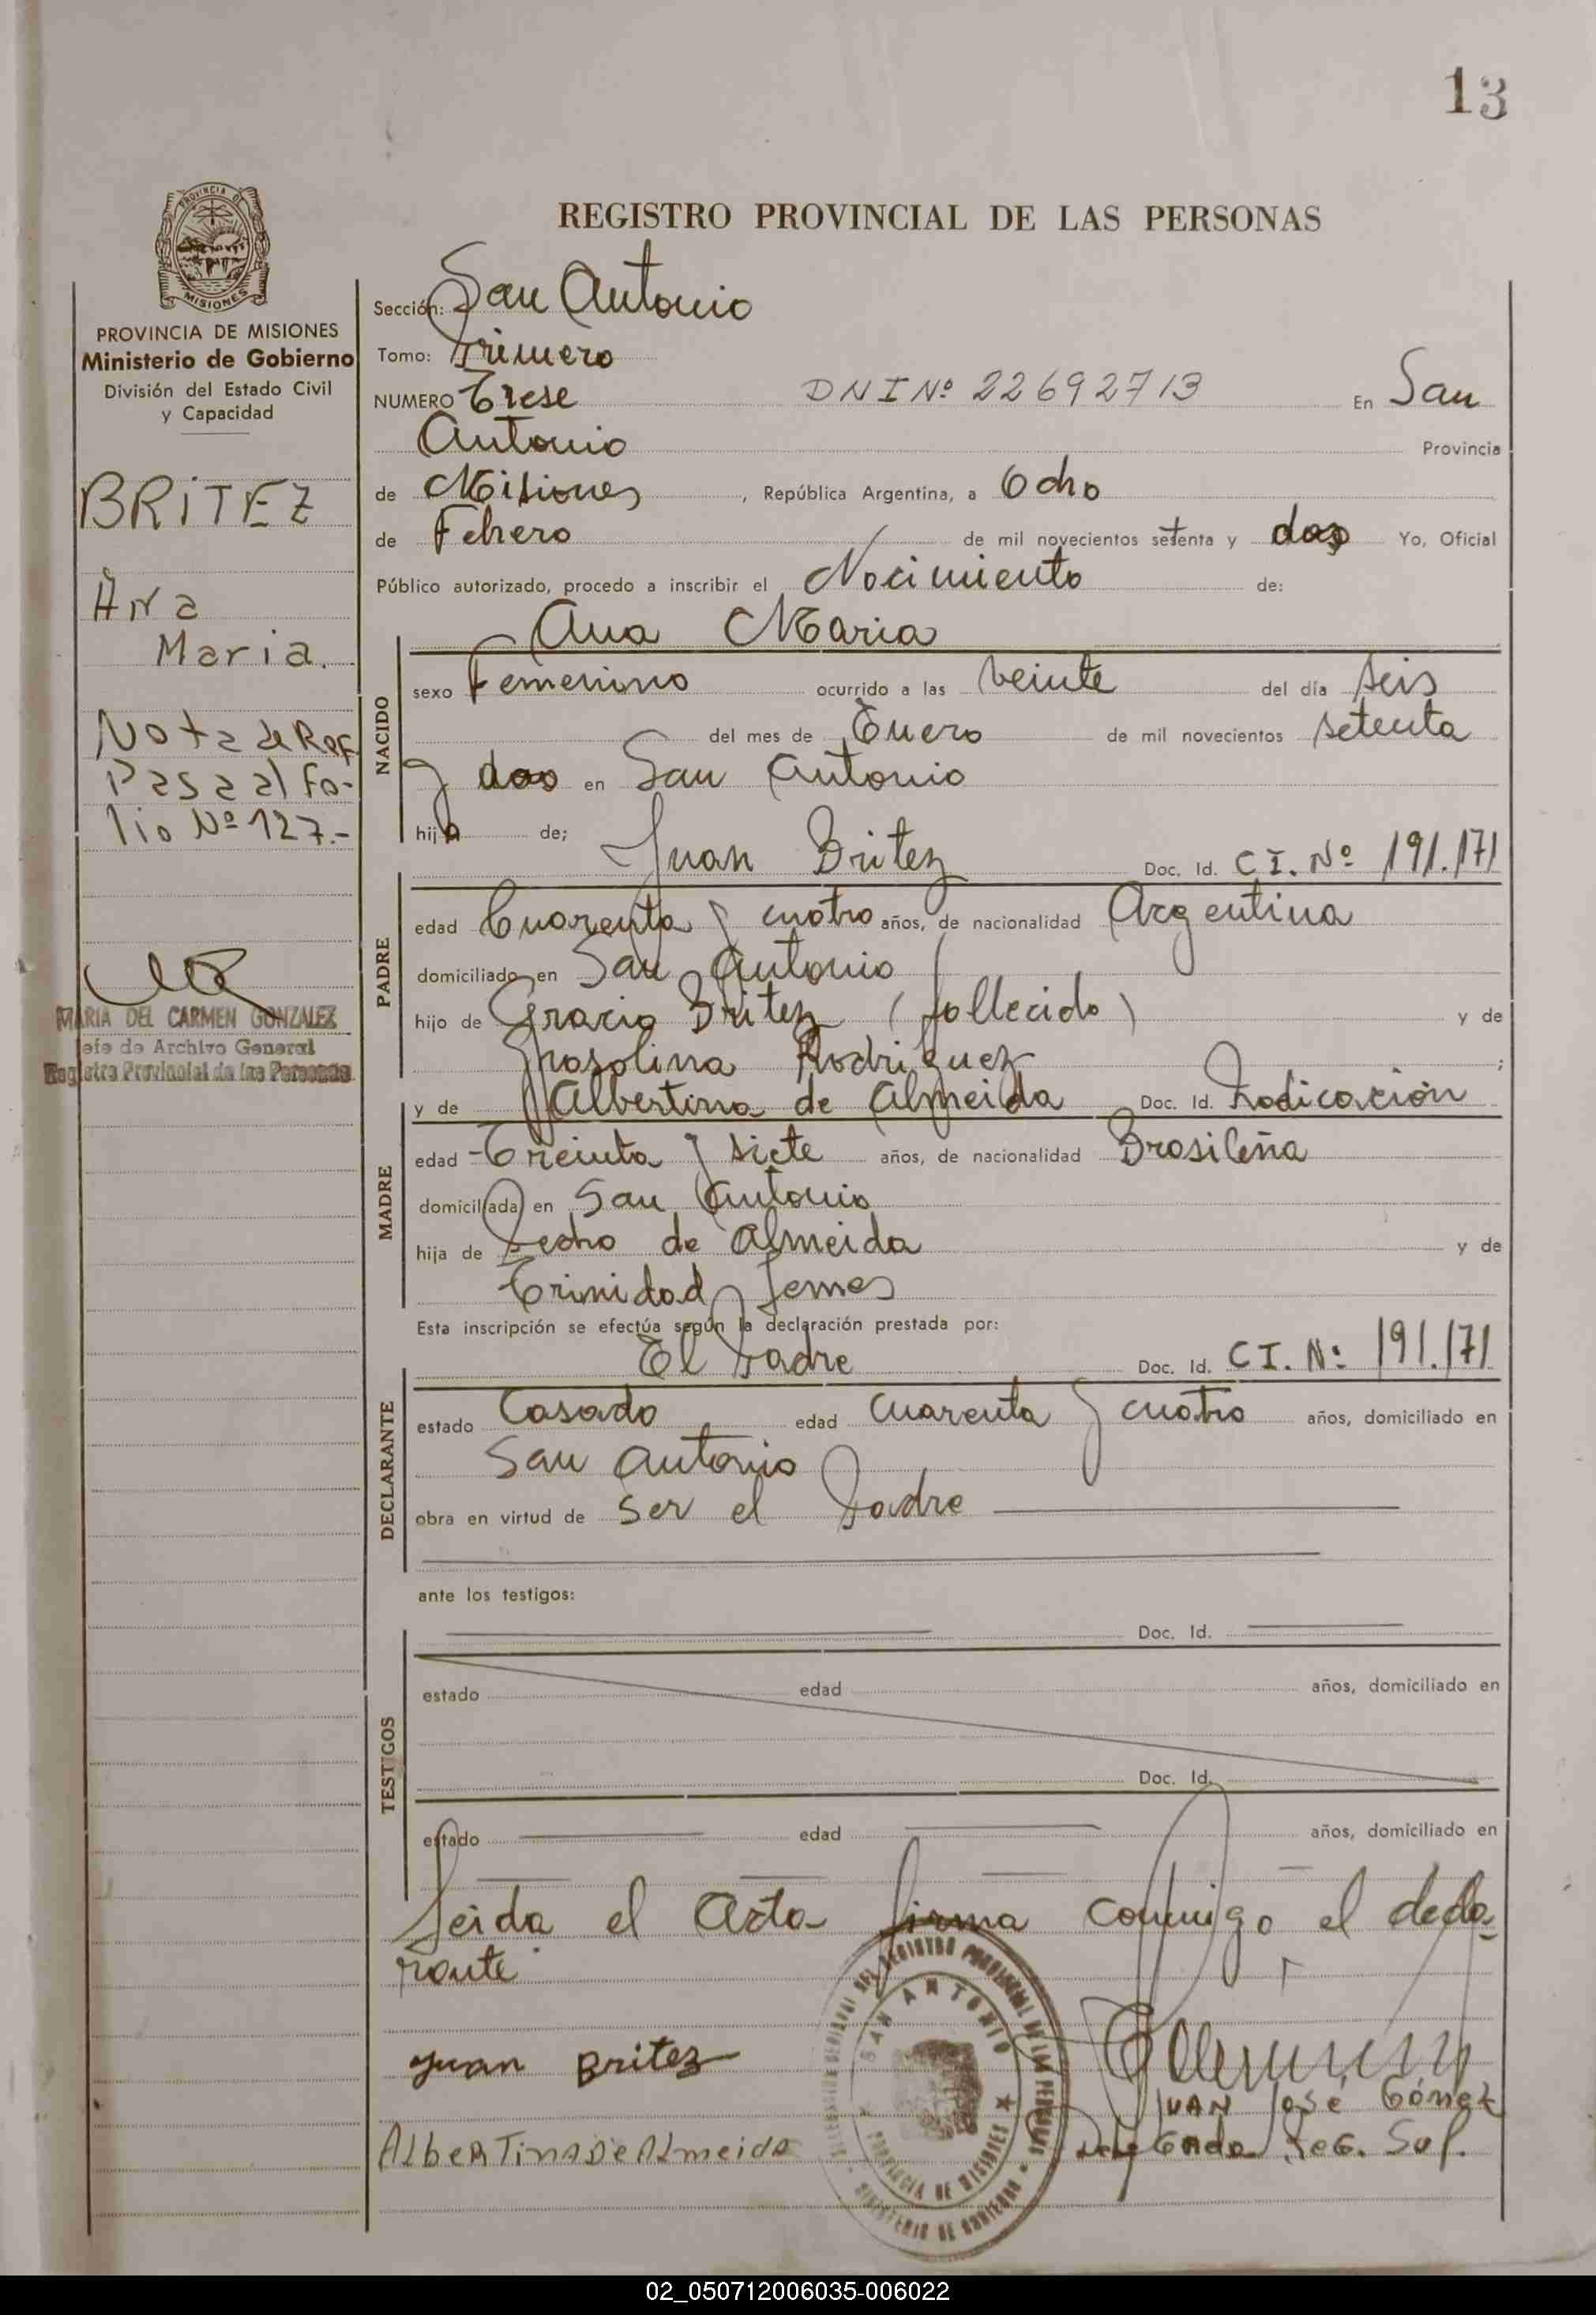 13
PROVINCIA DE
MISIONES
REGISTRO PROVINCIAL DE LAS PERSONAS
PROVINCIA DE MISIONES
Ministerio de Gobierno
División del Estado Civil
y Capacidad
BRITEZ
Ana
Maria.
Nota de Ref
Pasa al fo-
lio Nº 127.-
MARIA DEL CARMEN GONZALEZ
Jefe de Archivo General
Registro Provincial de las Personas
Sección: San Antonio
Tomo: Primero
NUMERO Trese DNI Nº 22692713 En San
Antonio Provincia
de Misiones, República Argentina, a Ocho
de Febrero de mil novecientos setenta y dos Yo, Oficial
Público autorizado, procedo a inscribir el Nacimiento de:
Ana Maria
NACIDO
sexo Femenino ocurrido a las veinte del día seis
del mes de Enero de mil novecientos setenta
y dos en San Antonio
hija de;
Juan Britez Doc. Id. C.I. Nº 191.171
PADRE
edad Cuarenta y cuatro años, de nacionalidad Argentina
domiciliado en San Antonio
hijo de Gracio Britez (fallecido) y de
Grasolina Rodriguez;
y de Albertina de Almeida Doc. Id. Radicación
MADRE
edad Treinta y siete años, de nacionalidad Brasileña
domiciliada en San Antonio
hija de Pedro de Almeida y de
Trinidad Lemes
Esta inscripción se efectúa según la declaración prestada por:
El Padre Doc. Id. C.I. Nº 191.171
DECLARANTE
estado Casado edad cuarenta y cuatro años, domiciliado en
San Antonio
obra en virtud de ser el Padre
ante los testigos:
Doc. Id.
TESTIGOS
estado edad años, domiciliado en
Doc. Id.
estado edad años, domiciliado en
Leida el Acta firma conmigo el decla-
rante
Juan Britez
Albertina de Almeida
SAN ANTONIO
PROVINCIA DE MISIONES
MINISTERIO DE GOBIERNO
JUAN José Gómez
Delegado Reg. Sup.
02_050712006035-006022